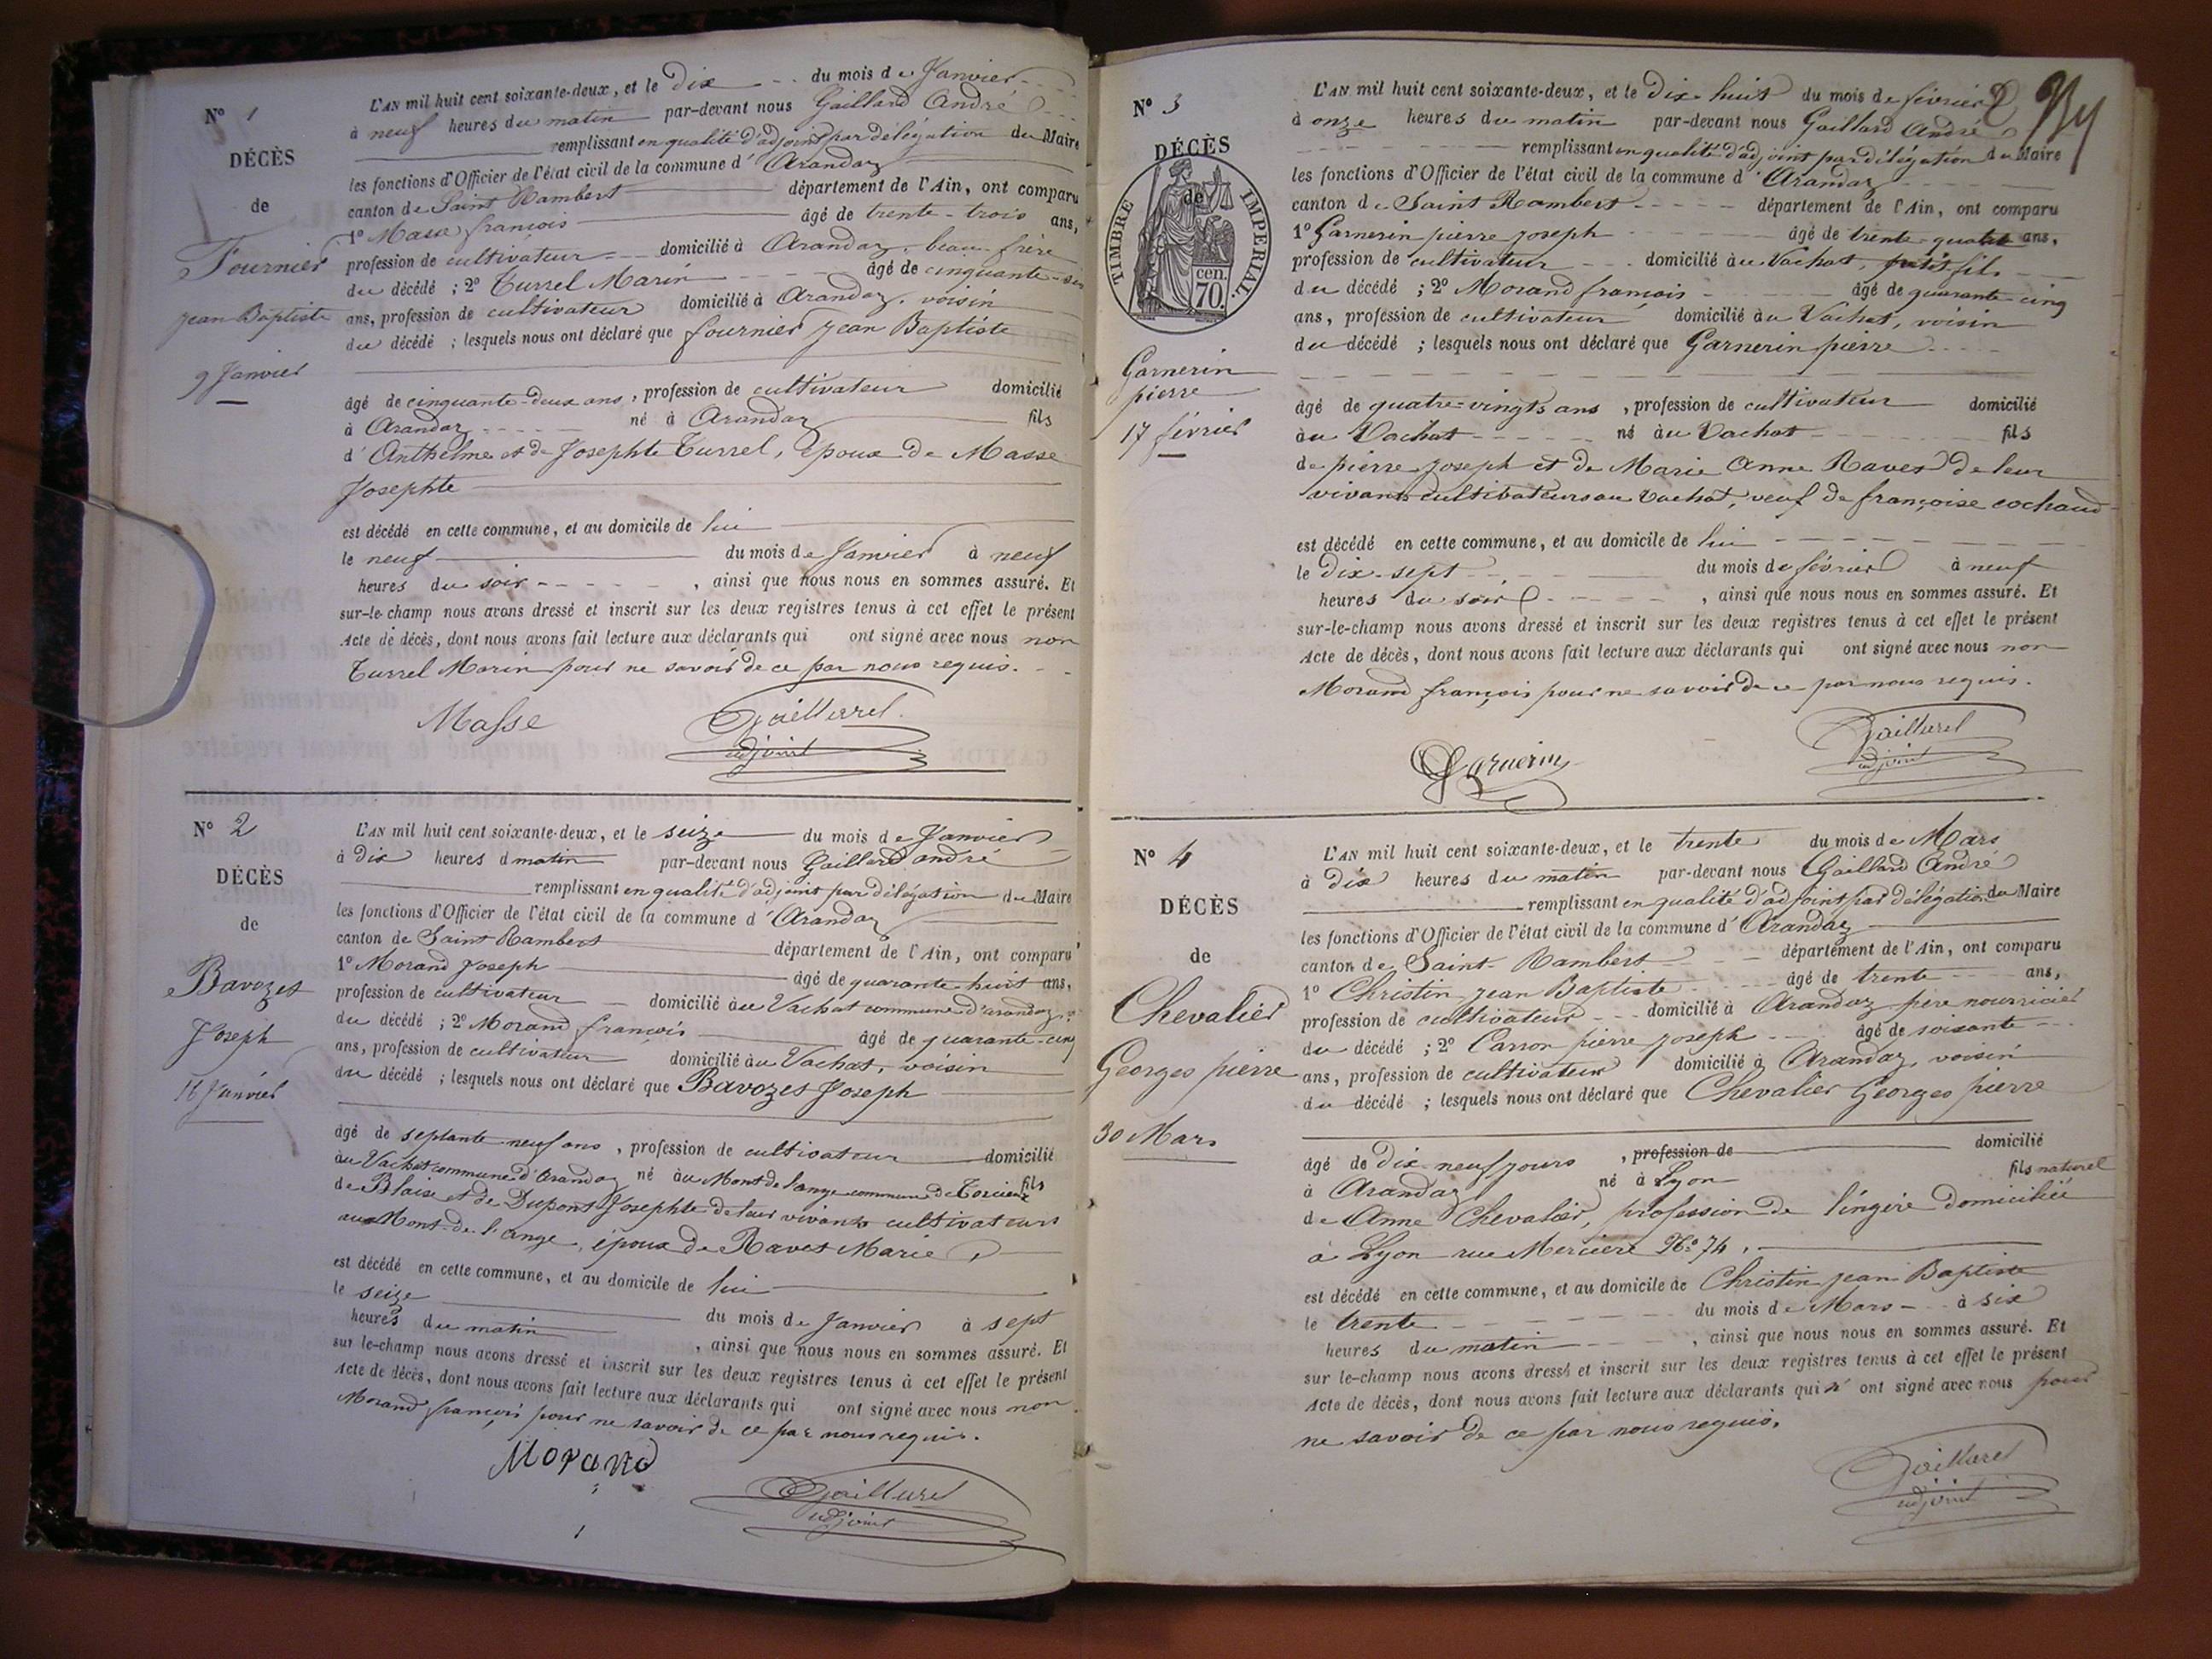 N° 1
DÉCÈS
de
Fournier
Jean Baptiste
9 Janvier
L'AN mil huit cent soixante-deux, et le Dix du mois de Janvier
à neuf heures du matin par-devant nous Gaillard André
remplissant en qualité d'adjoint par délégation du Maire
les fonctions d'Officier de l'état civil de la commune d'Arandaz
canton de Saint Rambert département de l'Ain, ont comparu
1° Masse françois âgé de trente-trois ans,
profession de cultivateur domicilié à Arandaz, beau-frère
du décédé ; 2° Turrel Marin âgé de cinquante-six
ans, profession de cultivateur domicilié à Arandaz, voisin
du décédé ; lesquels nous ont déclaré que fournier Jean Baptiste
âgé de cinquante-deux ans, profession de cultivateur domicilié
à Arandaz né à Arandaz fils
d'Anthelme et de Josephte Turrel, époux de Masse
Josephte
est décédé en cette commune, et au domicile de lui
le neuf du mois de Janvier à neuf
heures du soir, ainsi que nous nous en sommes assuré. Et
sur-le-champ nous avons dressé et inscrit sur les deux registres tenus à cet effet le présent
Acte de décès, dont nous avons fait lecture aux déclarants qui ont signé avec nous non
Turrel Marin pour ne savoir de ce par nous requis.
Masse Gaillard
adjoint
N° 2
DÉCÈS
de
Bavozet
Joseph
16 Janvier
L'AN mil huit cent soixante-deux, et le seize du mois de Janvier
à dix heures d matin par-devant nous Gaillard andré
remplissant en qualité d'adjoint par délégation du Maire
les fonctions d'Officier de l'état civil de la commune d'Arandaz
canton de Saint Rambert département de l'Ain, ont comparu
1° Morand Joseph âgé de quarante huit ans,
profession de cultivateur domicilié au Vachat commune d'arandaz
du décédé ; 2° Morand françois âgé de quarante-cinq
ans, profession de cultivateur domicilié au Vachat, voisin
du décédé ; lesquels nous ont déclaré que Bavozet Joseph
âgé de septante-neuf ans, profession de cultivateur domicilié
au Vachat commune d'Arandaz né au Mont de lange commune de Torcieu fils
de Blaise et de Dupont Josephte de leur vivants cultivateurs
au Mont-de-l'ange, époux de Ravet Marie
est décédé en cette commune, et au domicile de lui
le seize du mois de Janvier à sept
heures du matin, ainsi que nous nous en sommes assuré. Et
sur le-champ nous avons dressé et inscrit sur les deux registres tenus à cet effet le présent
Acte de décès, dont nous avons fait lecture aux déclarants qui ont signé avec nous non
Morand françois pour ne savoir de ce par nous requis.
Morand
Gaillard
adjoint
N° 3
DÉCÈS
de
TIMBRE IMPERIAL
70 cen.
Garnerin
pierre
17 février
2
L'AN mil huit cent soixante-deux, et le Dix huit du mois de février
à onze heures du matin par-devant nous Gaillard André
remplissant en qualité d'adjoint par délégation du Maire
les fonctions d'Officier de l'état civil de la commune d'Arandaz
canton de Saint Rambert département de l'Ain, ont comparu
1° Garnerin pierre joseph âgé de trente-quatre ans,
profession de cultivateur domicilié au Vachat, petit fils
du décédé ; 2° Morand françois âgé de quarante-cinq
ans, profession de cultivateur domicilié au Vachat, voisin
du décédé ; lesquels nous ont déclaré que Garnerin pierre
âgé de quatre-vingts ans, profession de cultivateur domicilié
au Vachat né au Vachat fils
de pierre joseph et de Marie Anne Ravet de leur
vivants cultivateurs au Vachat, veuf de françoise cochaud
est décédé en cette commune, et au domicile de lui
le Dix-sept du mois de février à neuf
heures du soir, ainsi que nous nous en sommes assuré. Et
sur-le-champ nous avons dressé et inscrit sur les deux registres tenus à cet effet le présent
Acte de décès, dont nous avons fait lecture aux déclarants qui ont signé avec nous non
Morand françois pour ne savoir de ce par nous requis.
Garnerin
Gaillard
adjoint
N° 4
DÉCÈS
de
Chevalier
Georges pierre
30 Mars
L'AN mil huit cent soixante-deux, et le trente du mois de Mars
à dix heures du matin par-devant nous Gaillard André
remplissant en qualité d'adjoint par délégation du Maire
les fonctions d'Officier de l'état civil de la commune d'Arandaz
canton de Saint-Rambert département de l'Ain, ont comparu
1° Christin Jean Baptiste âgé de trente ans,
profession de cultivateur domicilié à Arandaz père nourricier
du décédé ; 2° Carron pierre joseph âgé de soixante
ans, profession de cultivateur domicilié à Arandaz, voisin
du décédé ; lesquels nous ont déclaré que Chevalier Georges pierre
âgé de dix-neuf jours, profession de domicilié
à Arandaz né à Lyon fils naturel
de Anne Chevalier, profession de lingère domiciliée
à Lyon rue Mercière N° 74.
est décédé en cette commune, et au domicile de Christin jean Baptiste
le trente du mois de Mars à six
heures du matin, ainsi que nous nous en sommes assuré. Et
sur le-champ nous avons dressé et inscrit sur les deux registres tenus à cet effet le présent
Acte de décès, dont nous avons fait lecture aux déclarants qui n'ont signé avec nous pour
ne savoir de ce par nous requis.
Gaillard
adjoint